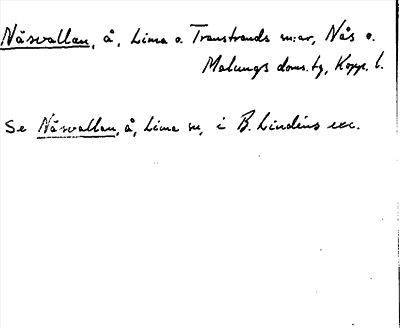 Näsvallan, å, Lima o. Transtrands sn:ar, Nås o.
Malungs doms.hg, Kopp. l.
Se Näsvallan, å, Lima sn, i B. Lindéns exc.